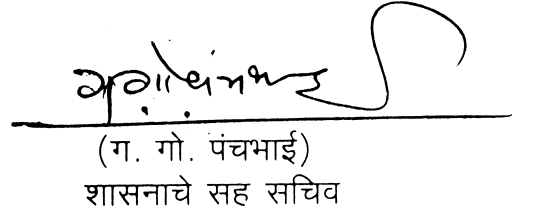 (ग. गो. पंचभाई)
शासनाचे सह सचिव